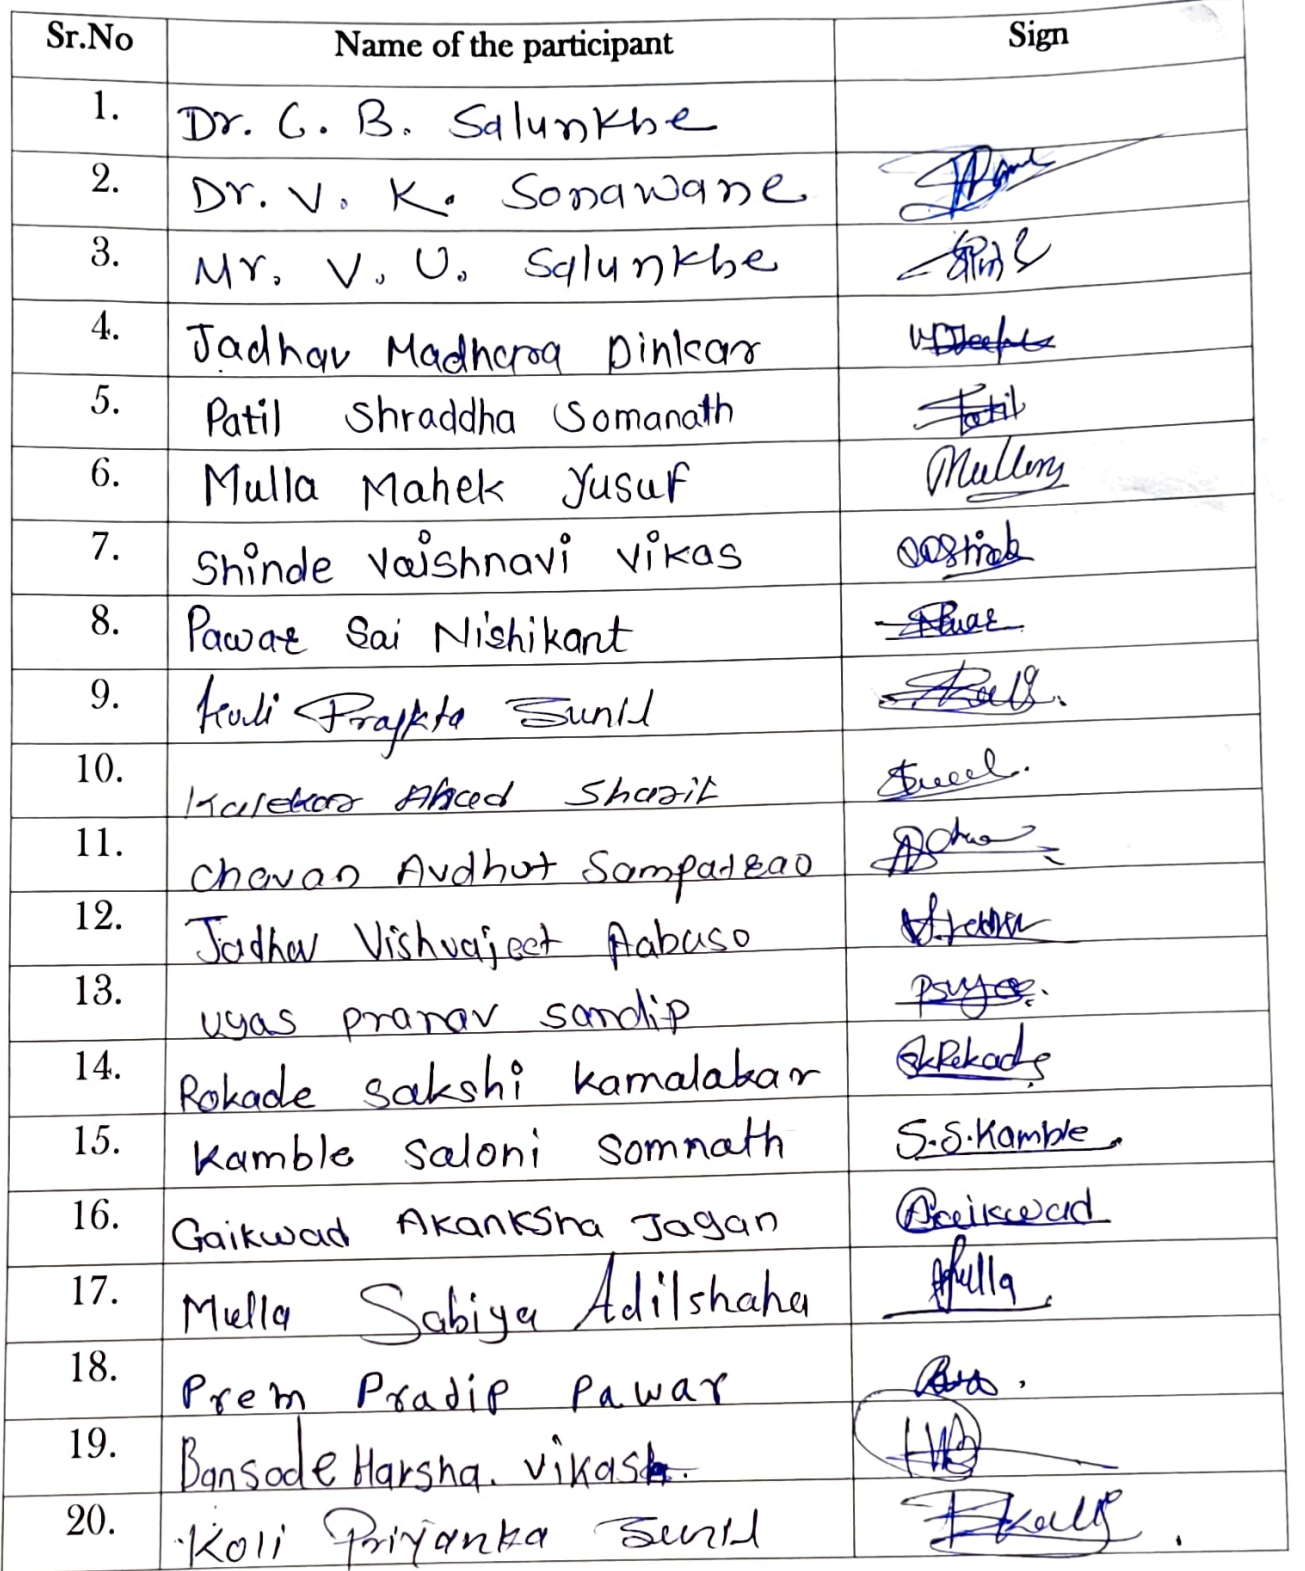 Sr.No Name of the participant Sign
1. Dr. C. B. Salunkhe
2. Dr. V. K. Sonawane
3. Mr. V. U. Salunkhe
4. Jadhav Dinkar
5. Patil Shraddha Somanath Patil
6. Mulla Mahek Yusuf
7. Shinde Vaishnavi Vikas
8. Pawar Sai Nishikant
9. Koli Prajkta Sunil
10. Ahad
11. Chavan Avdhut Sampatrao
12. Jadhav Vishvajeet Aabaso
13. vyas pranav sandip
14. Rokade Sakshi Kamalakar SkRokade
15. Kamble Saloni Somnath S.S.Kamble
16. Gaikwad Akanksha Jagan AGaikwad
17. Mulla Sabiya Adilshaha
18. Prem Pradip Pawar
19. Bansode Harsha. Vikas
20. Koli Priyanka Sunil